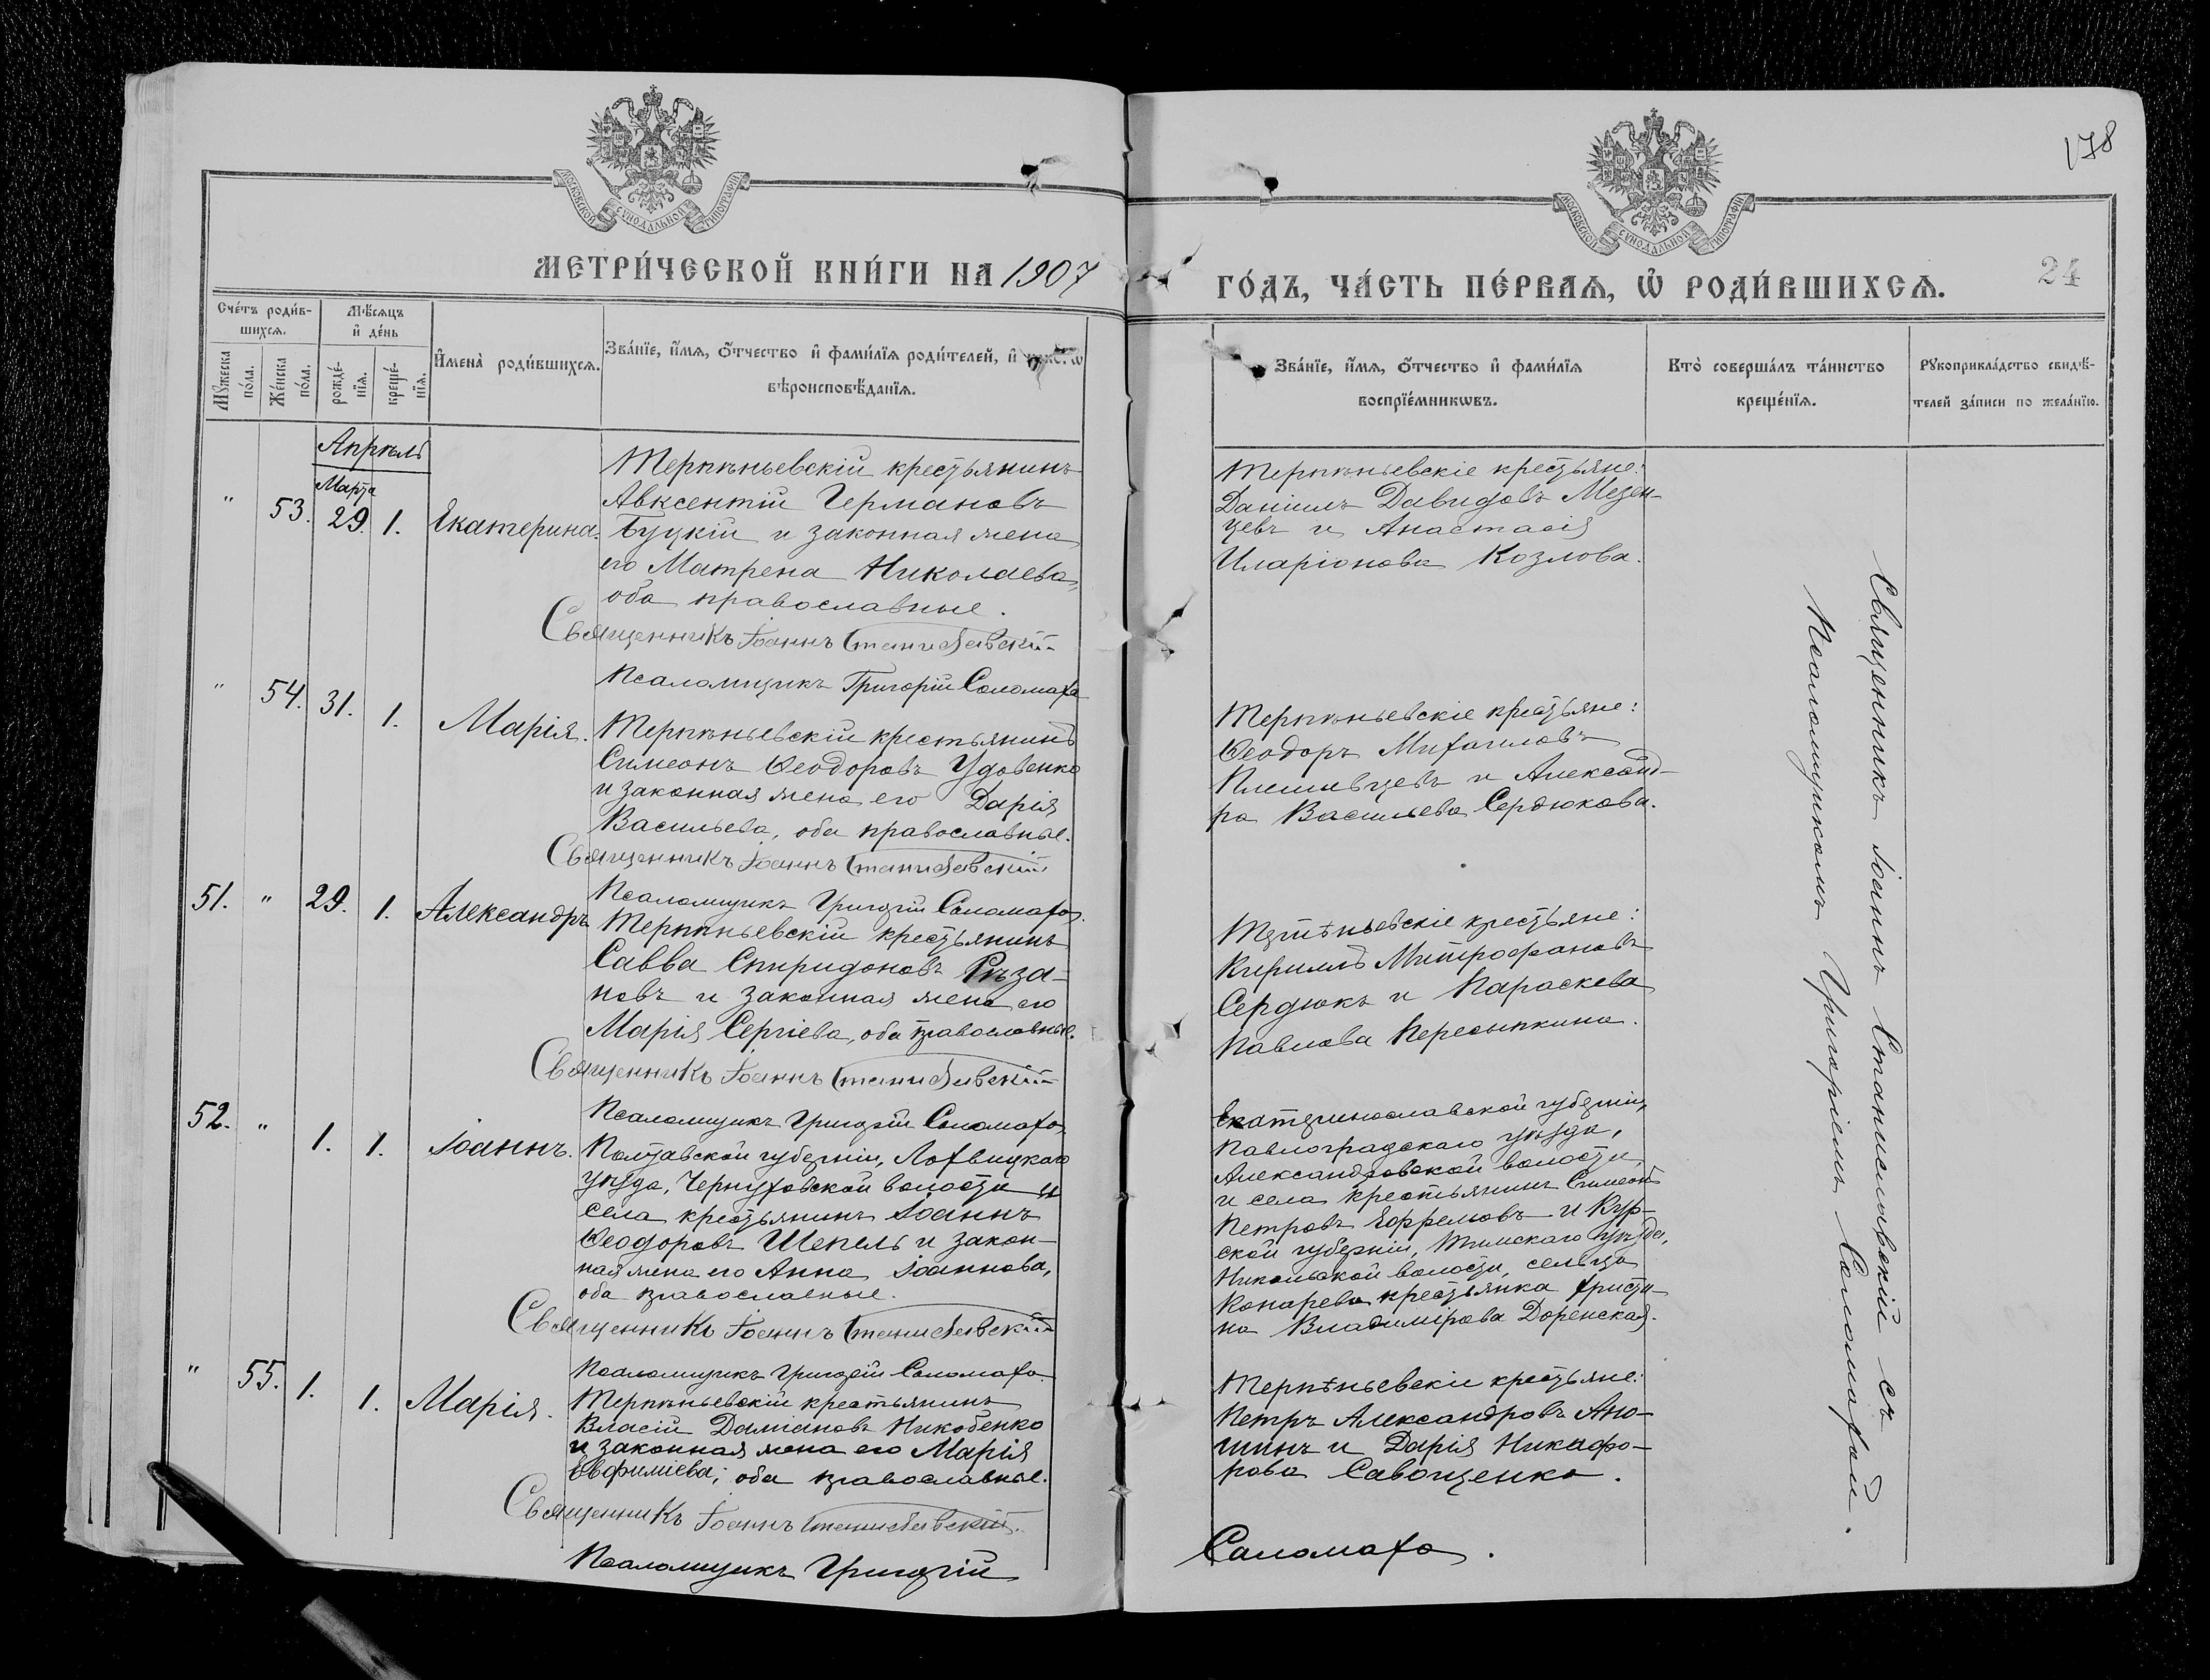 178
МОСКОВСКОЙ СѴНОДАЛЬНОЙ ТИПОГРАФІИ
МОСКОВСКОЙ СѴНОДАЛЬНОЙ ТИПОГРАФІИ
МЕТРИ́ЧЕСКОЙ КНИ́ГИ НА 1907
ГО́ДЪ, ЧА́СТЬ ПЕ́РВАѦ, Ѡ҆ РОДИ́ВШИХСѦ.
24
Сче́тъ роди́в-
шихсѧ.
Мꙋ́жеска
по́ла.
Же́нска
по́ла.
Мѣ́сѧцъ
и҆ де́нь
рожде́-
нїѧ.
креще́-
нїѧ.
И҆мена̀ роди́вшихсѧ.
Зва́нїе, и҆́мѧ, ѻ҆́тчество и҆ фами́лїѧ роди́телей, и҆
вѣроисповѣ́данїѧ.
Зва́нїе, и҆́мѧ, ѻ҆́тчество и҆ фами́лїѧ
воспрїе́мникѡвъ.
Кто̀ соверша́лъ та́инство
креще́нїѧ.
Рꙋкоприкла́дство свидѣ́-
телей за́писи по жела́нїю.
Апрѣль
Марта
" 53. 29. 1. Екатерина.
Терпѣньевскій крестьянинъ
Авксентій Германовъ
Буцкій и законная жена
его Матрена Николаева,
оба православные.
Священникъ Іоаннъ Станиславскій
Псаломщикъ Григорій Саломаха
Терпѣньевскіе крестьяне:
Даніилъ Давидовъ Мезен-
цевъ и Анастасія
Иларіонова Козлова.
" 54. 31. 1. Марія.
Терпѣньевскій крестьянинъ
Симеонъ Ѳеодоровъ Удовенко
и законная жена его Дарія
Васильева, оба православные.
Священникъ Іоаннъ Станиславскій
Псаломщикъ Григорій Саломаха.
Терпѣньевскіе крестьяне:
Ѳеодоръ Михаиловъ
Плешивцевъ и Александ-
ра Васильева Сердюкова.
51. " 29. 1. Александръ
Терпѣньевскій крестьянинъ
Савва Спиридоновъ Рѣза-
новъ и законная жена его
Марія Сергіева, оба православные.
Священникъ Іоаннъ Станиславскій
Псаломщикъ Григорій Саломаха
Терпѣньевскіе крестьяне:
Кириллъ Митрофановъ
Сердюкъ и Параскева
Павлова Пересыпкина.
52. " 1. 1. Іоаннъ.
Полтавской губерніи, Лохвицкаго
уѣзда, Чернухской волости и
села крестьянинъ Іоаннъ
Ѳеодоровъ Шепель и закон-
ная жена его Анна Іоаннова,
оба православные.
Священникъ Іоаннъ Станиславскій
Псаломщикъ Григорій Саломаха
Екатеринославской губерніи,
Павлоградскаго уѣзда,
Александровской волости
и села крестьянинъ Симеонъ
Петровъ Ефремовъ и Кур-
ской губерніи, Тимскаго уѣзда,
Никольской волости, сельца
Конарева крестьянка Христи-
на Владимірова Доренская.
" 55. 1. 1. Марія.
Терпѣньевскій крестьянинъ
Власій Даміановъ Никобенко
и законная жена его Марія
Евфиміева; оба православные.
Священникъ Іоаннъ Станиславскій.
Псаломщикъ Григорій
Саломаха.
Терпѣньевскіе крестьяне:
Петръ Александровъ Ано-
шинъ и Дарія Никифо-
рова Савощенко.
Священникъ Іоаннъ Станиславскій съ
Псаломщикомъ Григоріемъ Саломахой.